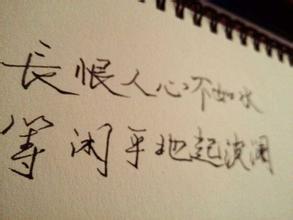 長恨人心不如水
等闲平地起波澜